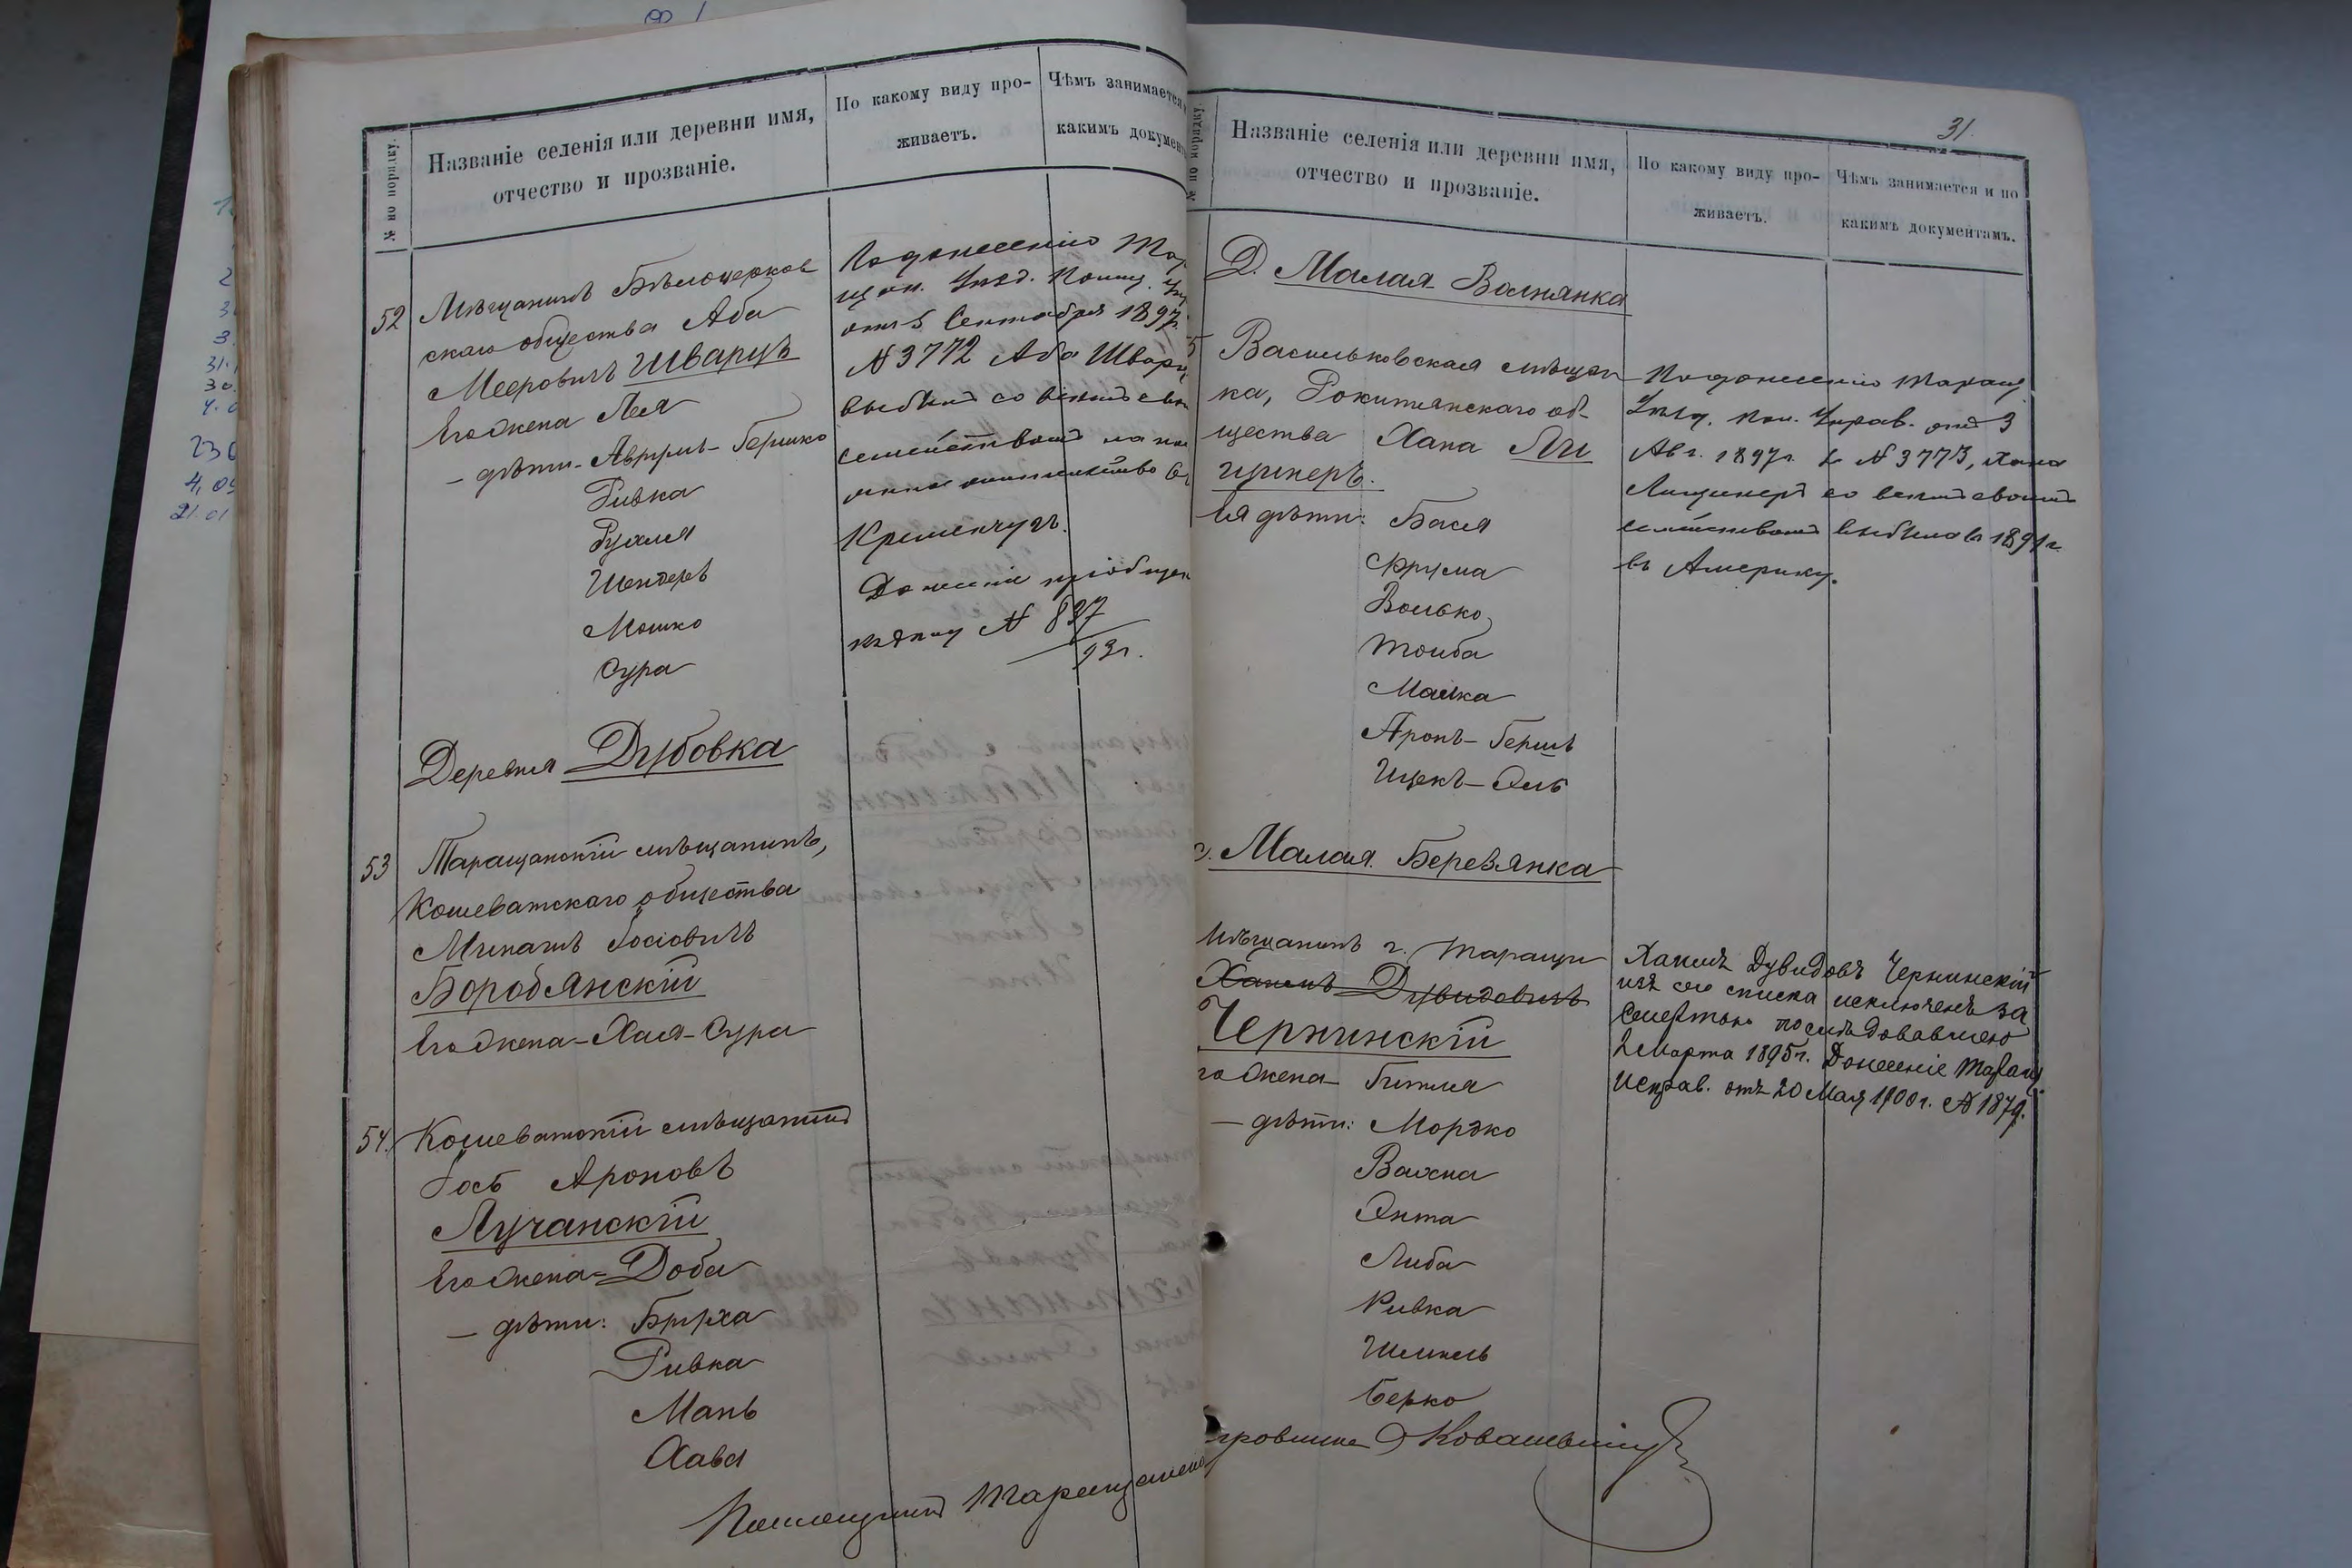 № по порядку.
Названіе селенія или деревни имя,
отчество и прозваніе.
По какому виду про-
живаетъ.
Чѣмъ занимается
какимъ докумен
52
Мѣщанинъ Бѣлоцерков
скаго общества Аба
Мееровичъ Шварцъ
Его жена Лея
— дѣти - Аврумъ - Гершко
Ривка
Рухля
Шендеръ
Мошко
Сура
По донесенію Тар
щан. Уѣзд. Полиц. Упр
отъ 5 Сентября 1897г.
№ 3772 Аба Шварц
выбылъ со всѣмъ сво
семействомъ на
жительство в
Кременчугъ.
Донесеніе пріобщен
къ дѣлу № 837
93г.
Деревня Дубовка
53
Таращанскій мѣщанинъ,
Кошеватскаго общества
Мунашъ Іосіовичъ
Бородянскій
Его жена - Хая - Сура
54.
Кошеватскій мѣщанинъ
Іось Ароновъ
Лучанскій
Его жена - Доба
— дѣти: Бруха
Ривка
Мань
Хава
Помощникъ Таращанскаго
31.
№ по порядку.
Названіе селенія или деревни имя,
отчество и прозваніе.
По какому виду про-
живаетъ.
Чѣмъ занимается и по
какимъ документамъ.
Д. Малая Волнянка
5
Васильковская мѣщан
ка, Рокитянскаго об-
щества Хана Ли
цинеръ.
Ея дѣти: Бася
Фрума
Волько
Тойба
Малка
Аронъ - Гершъ
Ицекъ - Эль
По донесенію Таращ.
Уѣзд. Пол. Управ. отъ 3
Авг. 1897г. за № 3773, Хана
Лицинеръ со всѣмъ своимъ
семействомъ выбыла въ 1891 г.
въ Америку.
с. Малая Березянка
Мѣщанинъ г. Таращи
Хаимъ Дувидовичъ
Чернинскій
го жена - Гитля
— дѣти: Мордко
Вахна
Энта
Либа
Ривка
Шмиль
Берко
Хаимъ Дувидовъ Чернинскій
изъ сего списка исключенъ за
смертью послѣдовавшею
2 Марта 1895г. Донесеніе Таращ.
Исправ. отъ 20 Мая 1900г. № 1879.